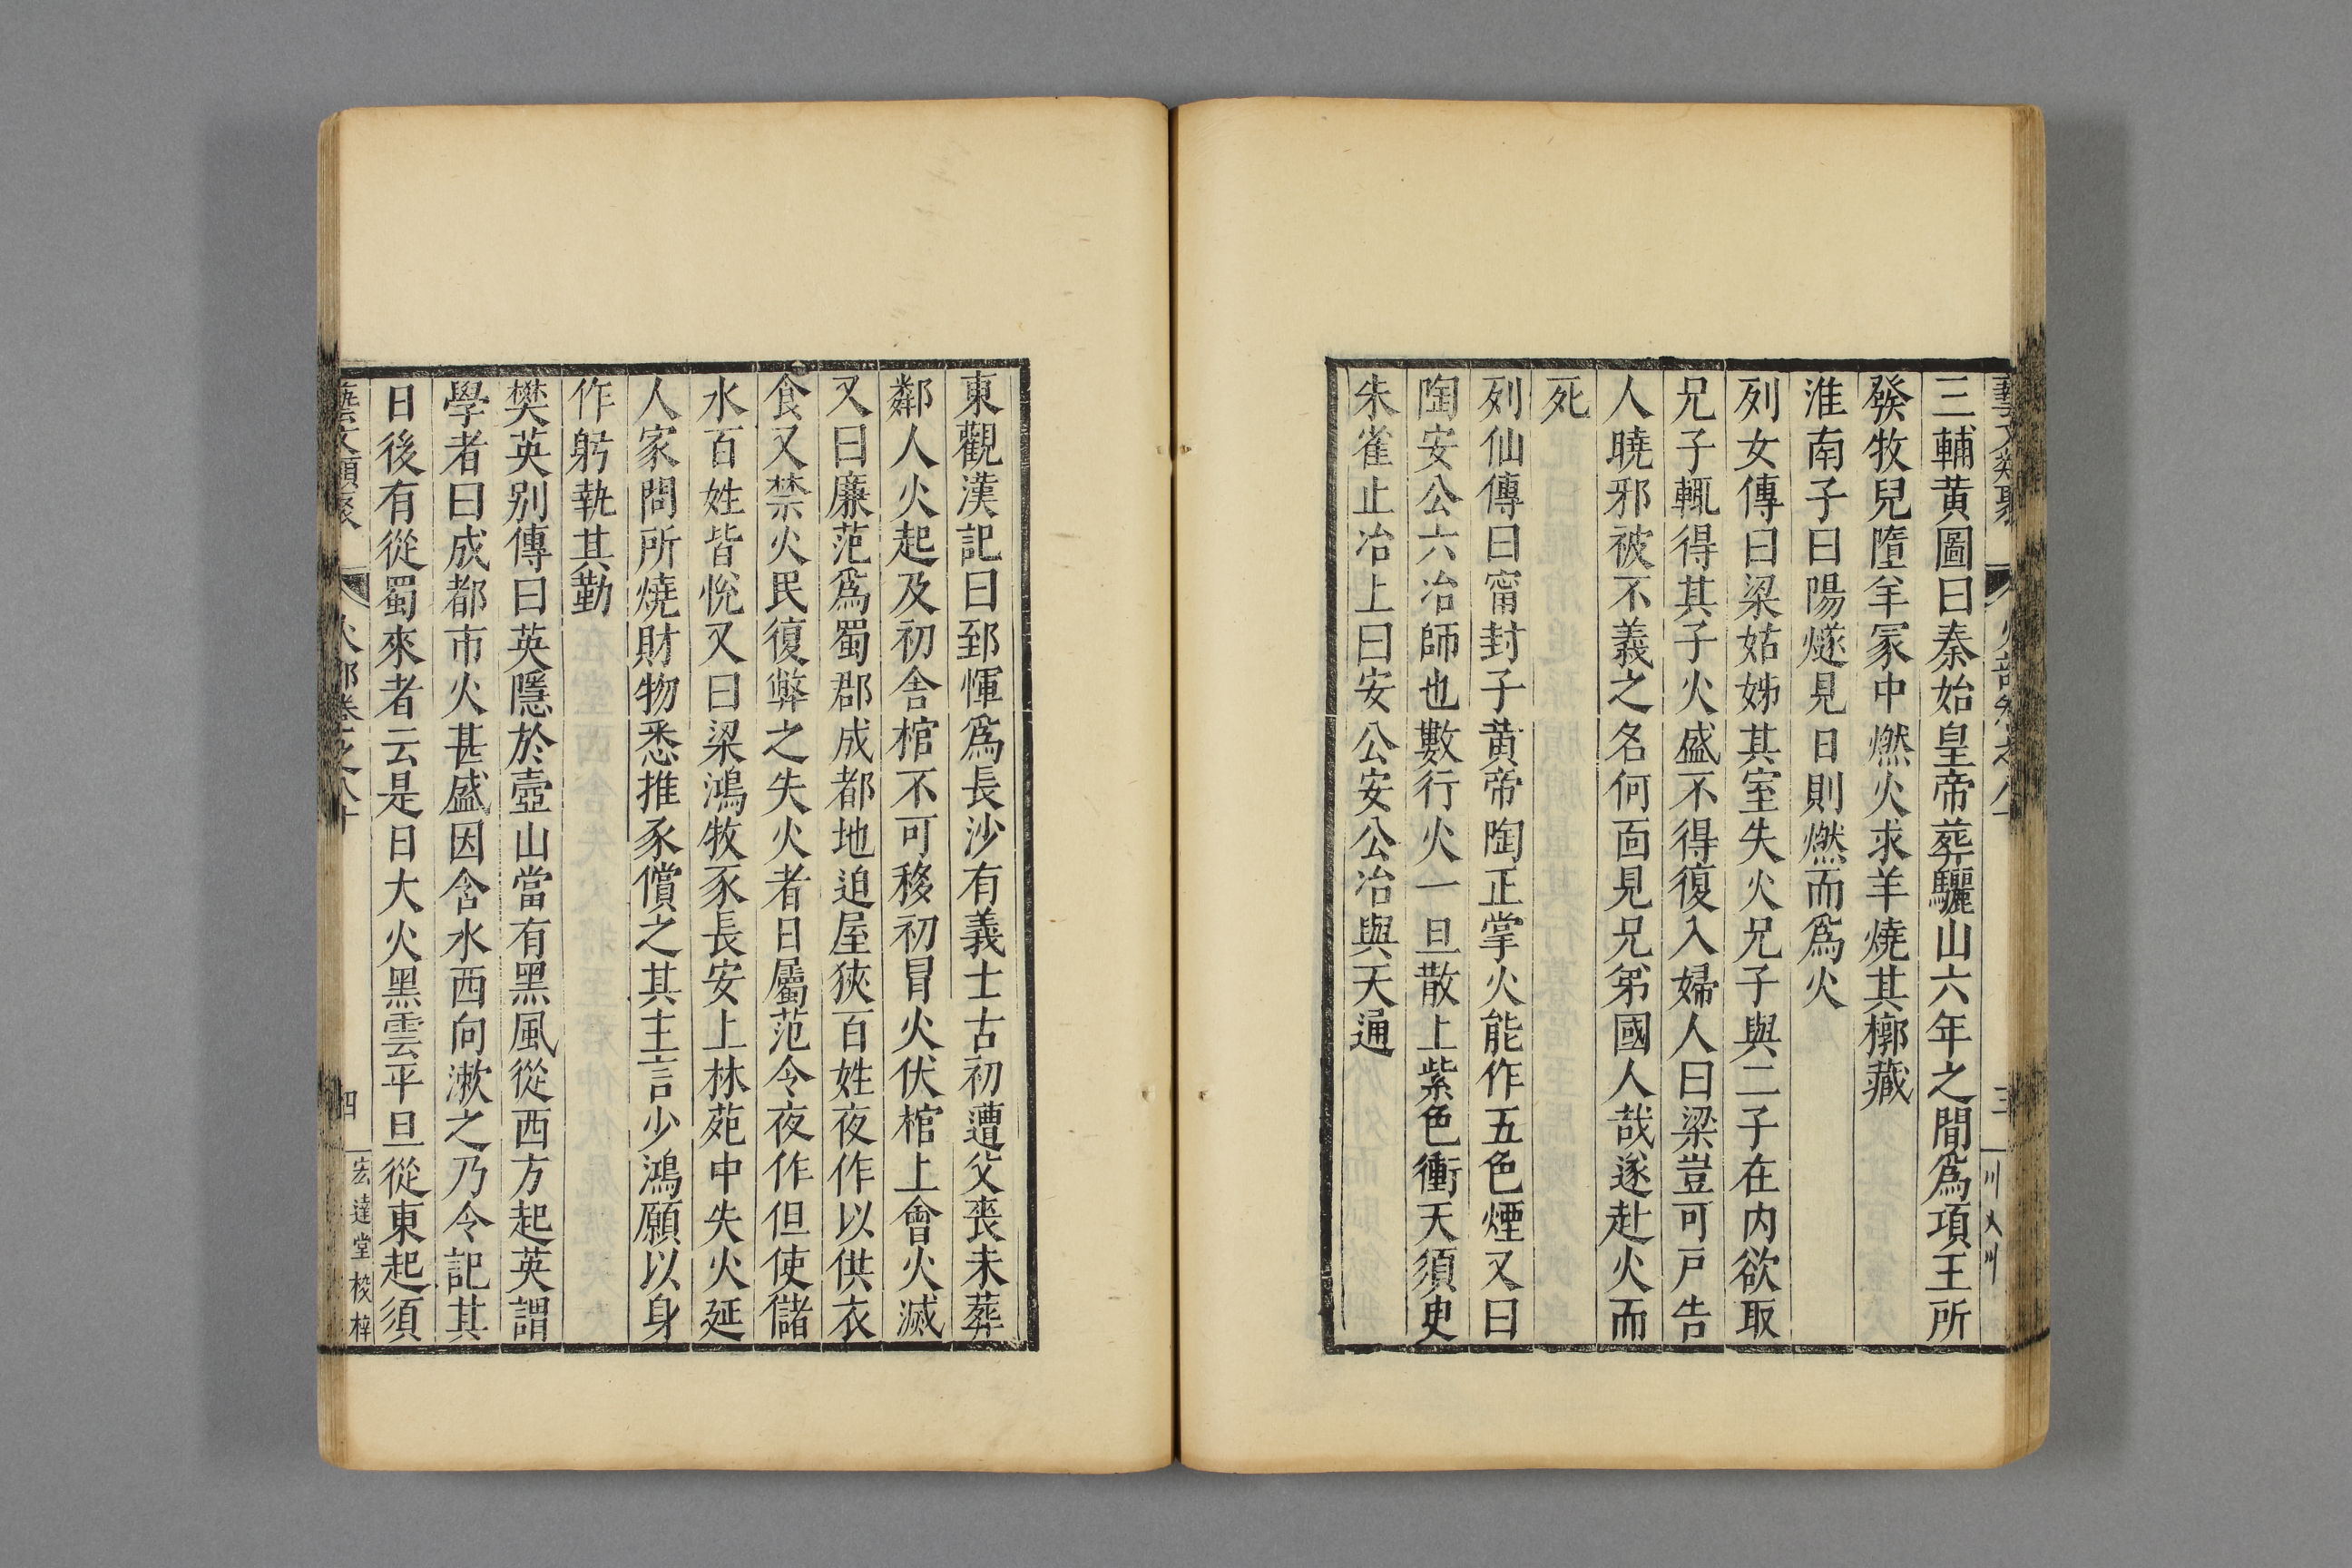 三輔黃圖曰秦始皇帝葬驪山六年之間爲項王所
發牧兒墮羊冢中燃火求羊燒其槨藏
淮南子曰陽燧見日則燃而爲火
列女傳曰梁姑姊其室失火兄子與二子在內欲取
兄子輒得其子火盛不得復入婦人曰梁豈可戶告
人曉邪被不義之名何面見兄弟國人哉遂赴火而
死
列仙傳曰甯封子黃帝陶正掌火能作五色煙又曰
陶安公六冶師也數行火一旦散上紫色衝天須史
朱雀止冶上曰安公安公冶與天通
東觀漢記曰郅惲爲長沙有義士古初遭父喪未葬
鄰人火起及初舍棺不可移初冒火伏棺上會火滅
又曰廉范爲蜀郡成都地迫屋狹百姓夜作以供衣
食又禁火民復弊之失火者日屬范令夜作但使儲
水百姓皆悅又曰梁鴻牧豕長安上林苑中失火延
人家問所燒財物悉推豕償之其主言少鴻願以身
作躬執其勤
樊英別傳曰英隱於壺山當有黑風從西方起英謂
學者曰成都市火甚盛因含水西向漱之乃令記其
日後有從蜀來者云是日大火黑雲平旦從東起須
藝文類聚 火部卷之八十 四 宏達堂校梓